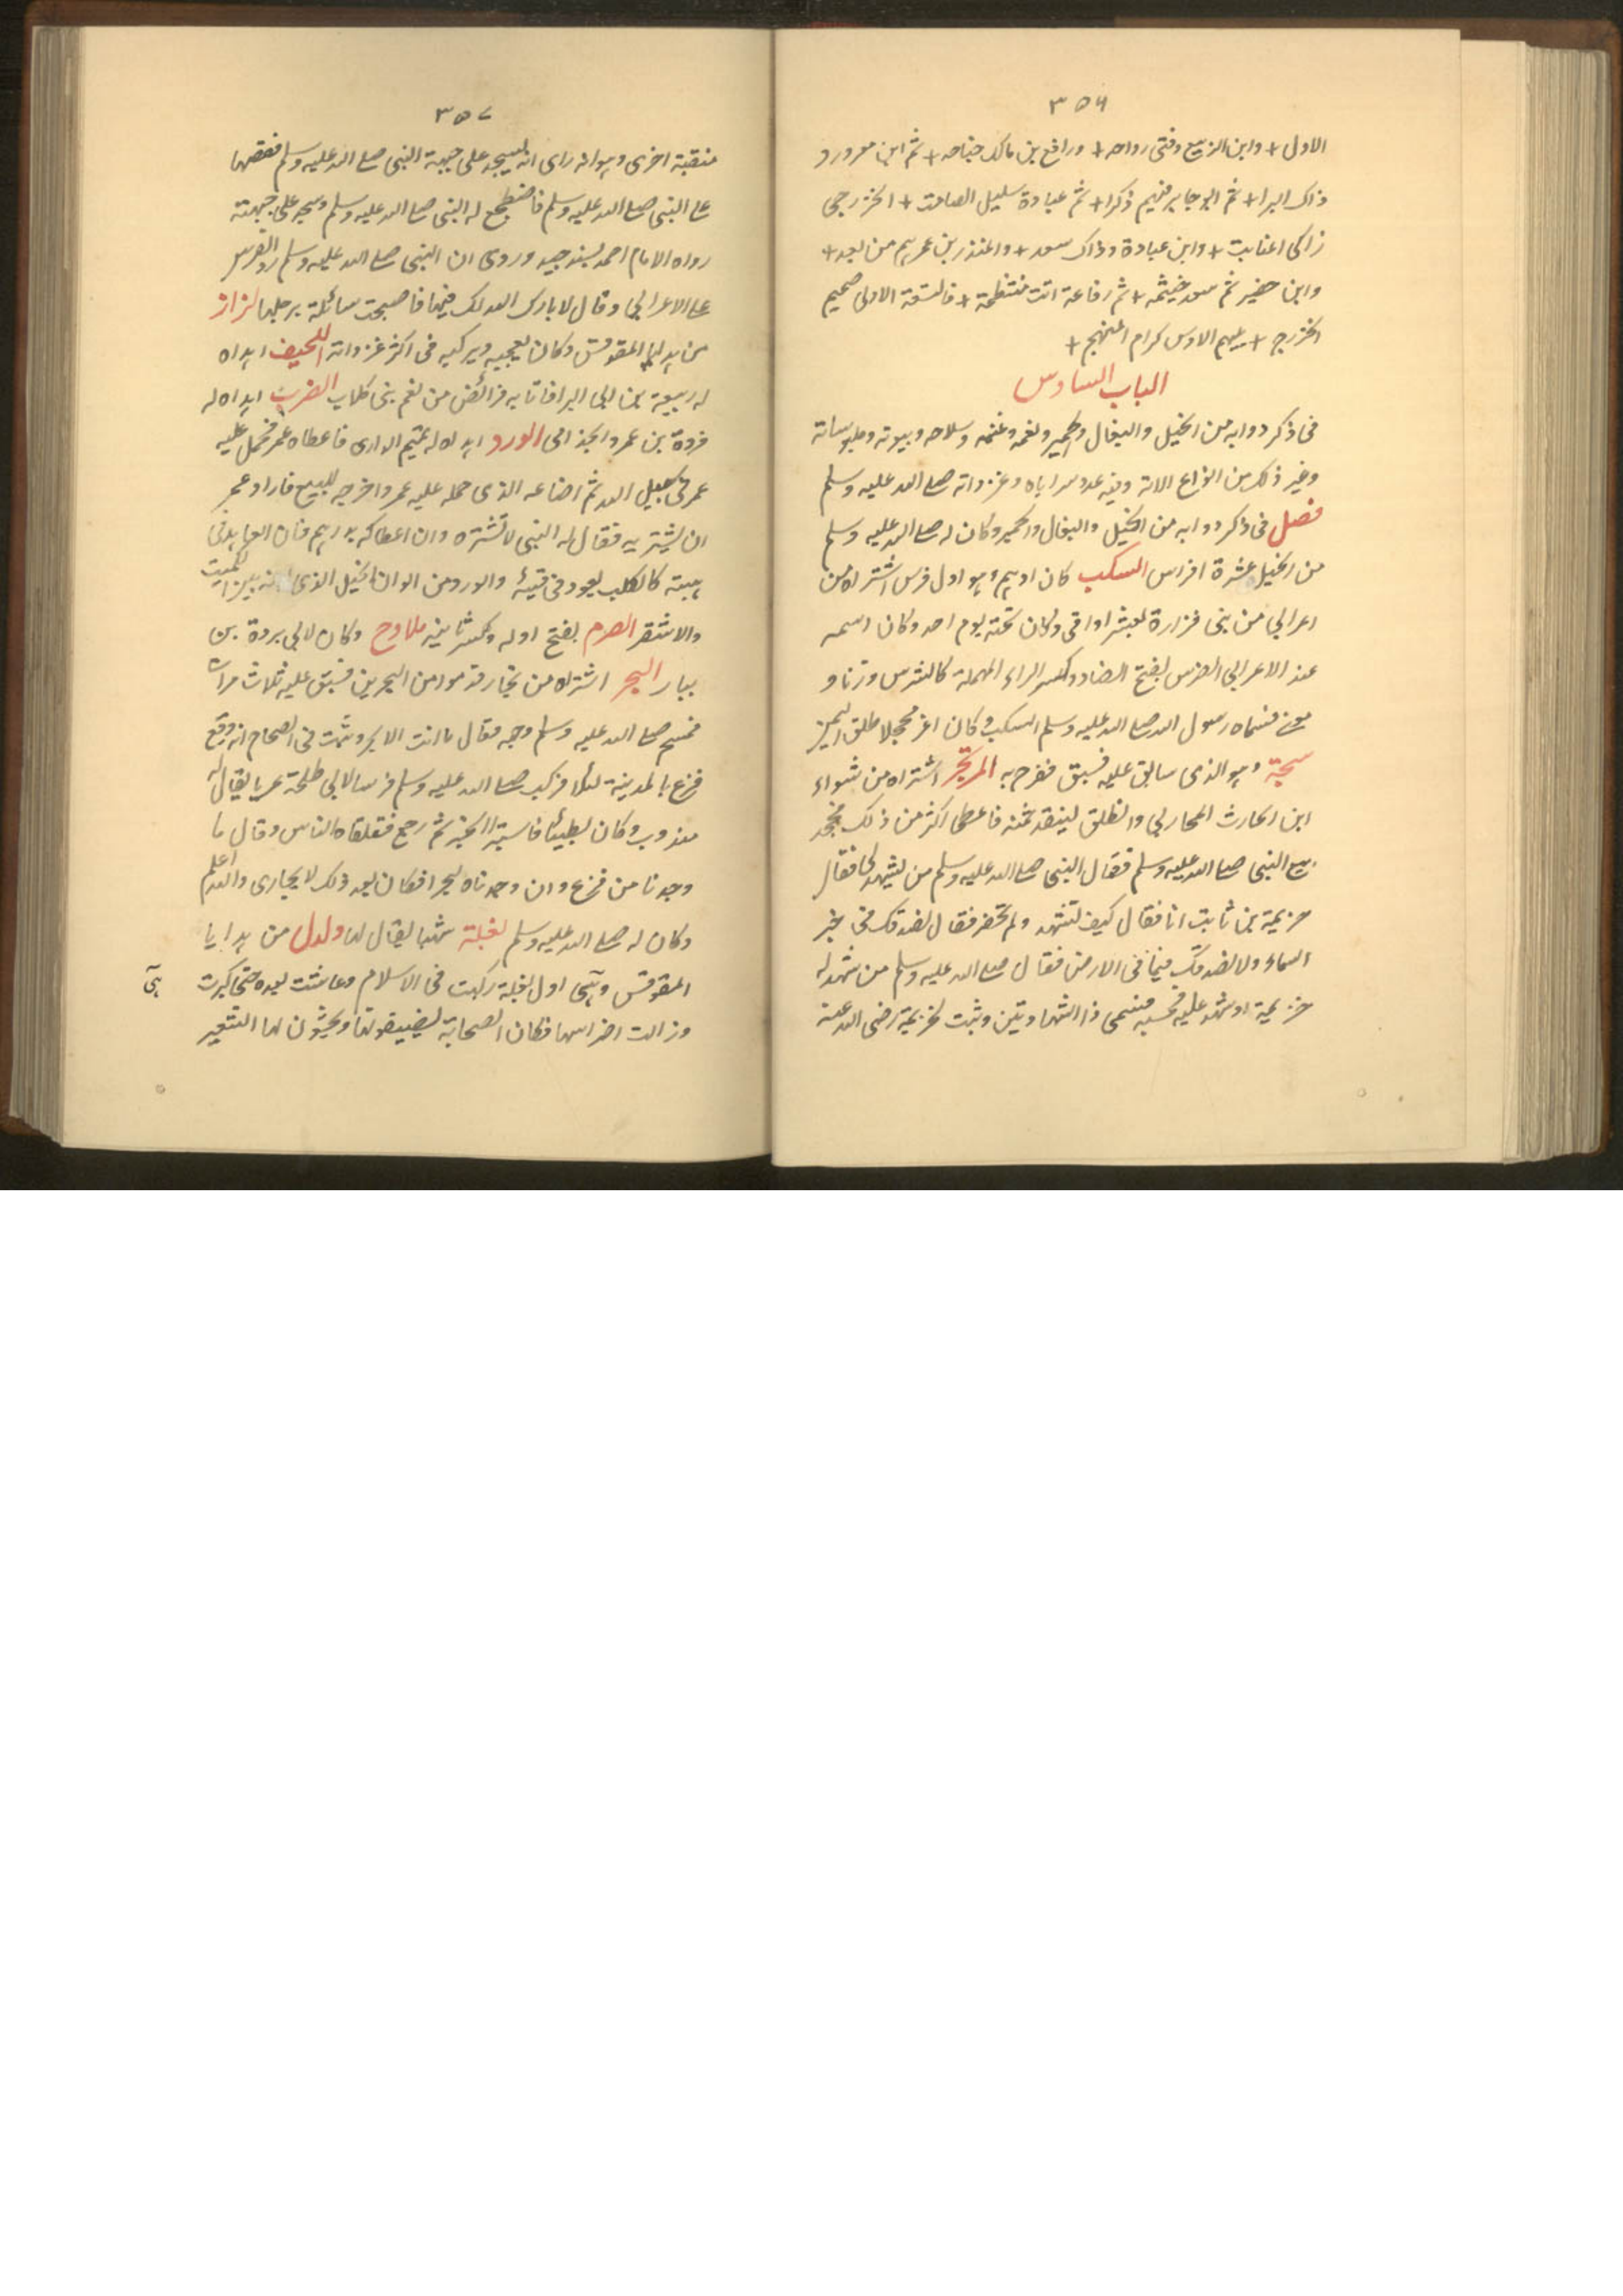 ٣٥٦
الاول + وابن الربيع وفتى رواحه + ورافع بن مالك جناحه + ثم ابن معرورو
ذاك البرا + ثم ابو جابر فنهم ذكرا + ثم عبادة سليل الصامت + الخزرجى
زاكى المنابت + وابن عبادة وذاك سعد + والمنذر بن عمرهم من بعد +
وابن حضير ثم سعد خيثمه + ثم رفاعة اتت منتظمة + فالتسعة الاولى صميم
الخزرج + يليهم الاوس كرام المنهج +
الباب السادس
فى ذكر دوابه من الخيل والبغال والحمير ونعمه وغنمه وسلاحه وبيوته وملبوساته
وغير ذلك من انواع الاته وفيه عدد سراياه وغزواته صلى الله عليه وسلم
فصل فى ذكر دوابه من الخيل والبغال والحمير وكان له صلى الله عليه وسلم
من الخيل عشرة افراس السكب كان ادهم وهو اول فرس اشتراه من
اعرابى من بنى فزارة بعشر اواقى وكان تحته يوم احد وكان اسمه
عند الاعرابى الضرس بفتح الضاد وكسر الراء المهملة كالشرس وزنا و
معنى فسماه رسول الله صلى الله عليه وسلم السكب وكان اغر محجلا طلق اليمين
سبحة وهو الذى سابق عليه فسبق ففرح به المرتجز اشتراه من سواء
ابن الحارث المحاربى وانطلق لينقد ثمنه فاعطى اكثر من ذلك فجحد
بيع النبى صلى الله عليه وسلم فقال النبى صلى الله عليه وسلم من يشهد لى فقال
خزيمة بن ثابت انا فقال كيف تشهد ولم تحضر فقال نصدقك فى خبر
السماء ولا نصدقك فيما فى الارض فقال صلى الله عليه وسلم من شهد له
خزيمة او شهد عليه فحسبه فسمى ذا الشهادتين وثبت لخزيمة رضى الله عنه
٣٥٧
منقبة اخرى وهو انه راى انه يسجد على جبهة النبى صلى الله عليه وسلم فقصها
على النبى صلى الله عليه وسلم فاضطجع له النبى صلى الله عليه وسلم وسجد على جبهته
رواه الامام احمد بسند جيد وروى ان النبى صلى الله عليه وسلم رد الفرس
على الاعرابى وقال لا بارك الله لك فيها فاصبحت سائلة برجلها لزاز
من هدايا المقوقس وكان يعجبه ويركبه فى اكثر غزواته اللحيف اهداه
له ربيعة بن ابى البرا فاثابه فرائض من نعم بنى كلاب الضرب اهداه له
فروة بن عمرو الجذامى الورد اهداه له تميم الدارى فاعطاه عمر فحمل عليه
عمر فى سبيل الله ثم اضاعه الذى حمله عليه عمر واخرجه للبيع فاراد عمر
ان يشتريه فقال له النبى لا تشتره وان اعطاكه بدرهم فان العايد فى
هبته كالكلب يعود فى قيئه والورد من الوان الخيل الذى بين الكميت
والاشقر الصرم بفتح اوله وكسر ثانيه ملاوح وكان لابى بردة بن
ببار البحر اشتراه من تجار قدموا من البحرين فسبق عليه ثلاث مرات
فمسح صلى الله عليه وسلم وجهه وقال ما انت الا بحر وثبت فى الصحاح انه وقع
فزع بالمدينة ليلا فركب صلى الله عليه وسلم فرسا لابى طلحة عريا يقال له
مندوب وكان بطيئا فاستبرا الخبر ثم رجع فتلقاه الناس وقال ما
وجدنا من فزع وان وجدناه لبحرا فكان بعد ذلك لا يجارى والله اعلم
وكان له صلى الله عليه وسلم بغلة شهبا يقال لها دلدل من هدايا
المقوقس وهى اول بغلة ركبت فى الاسلام وعاشت بعده حتى كبرت
وزالت اضراسها فكان الصحابة يضيفونها ويحثون لها الشعير
هى